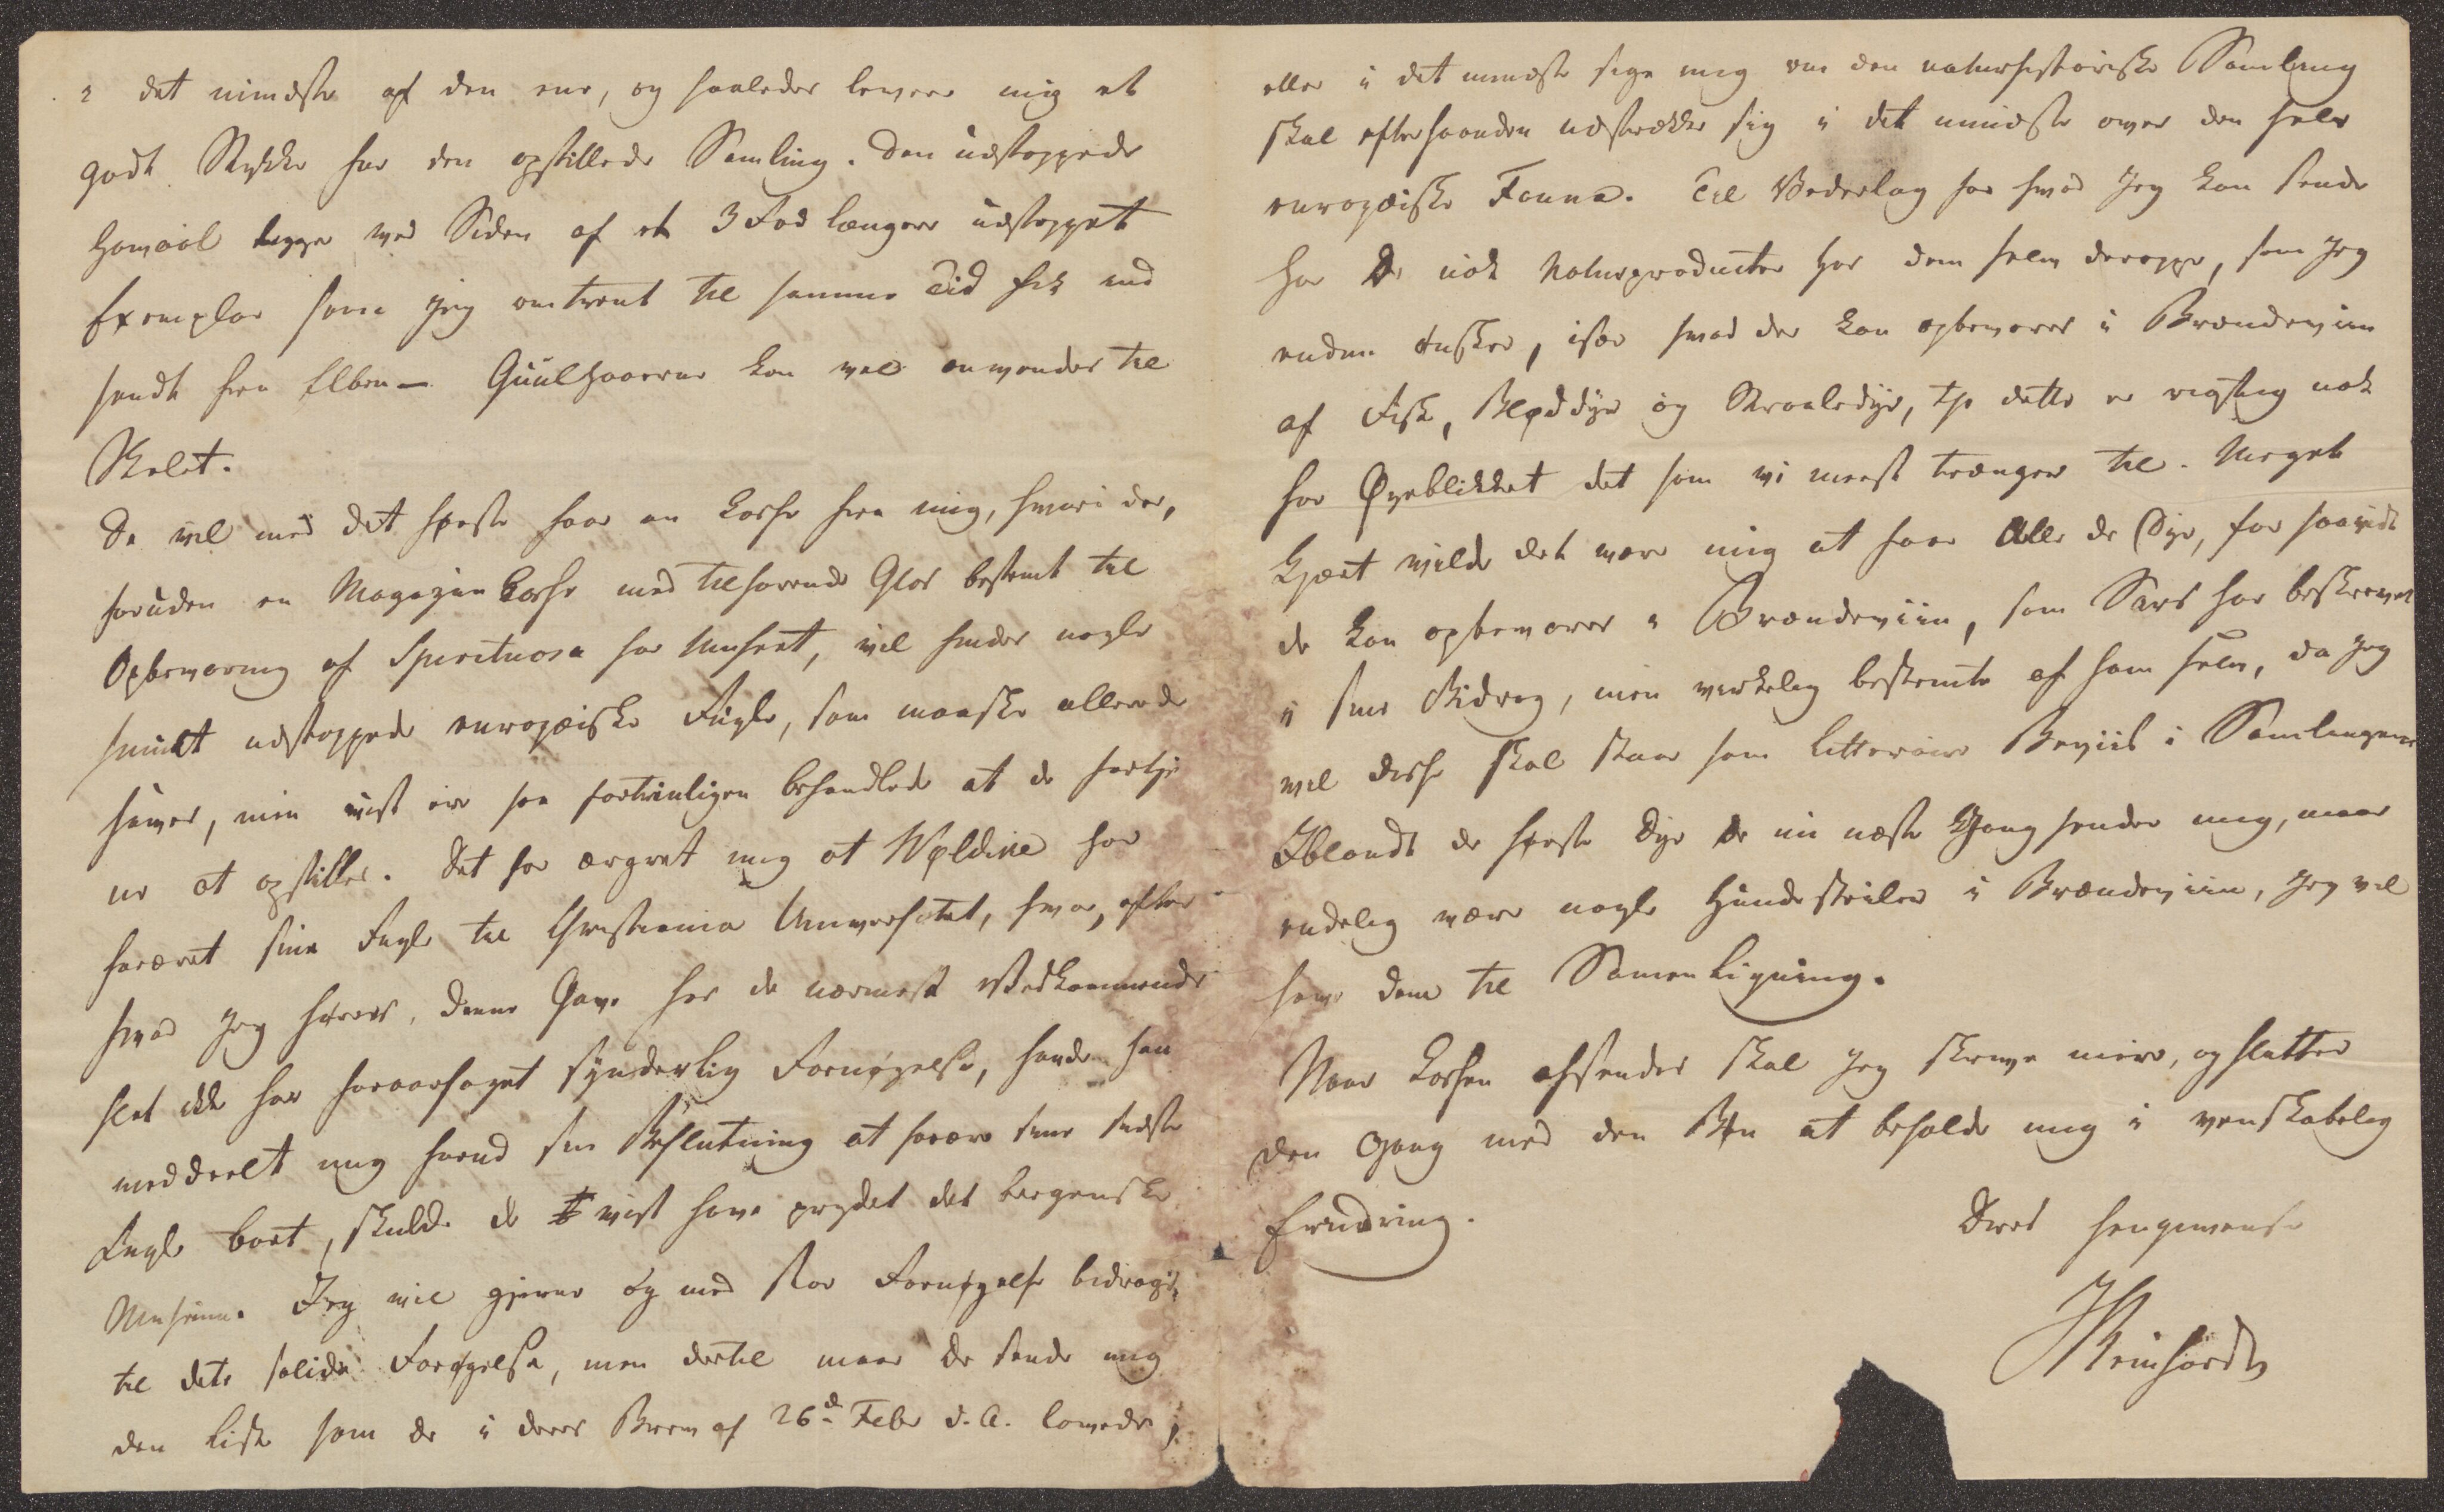 i det mindste af den ene, og saaledes levere mig et
godt Stykke for den opstillede Samling. Den udstoppede
Havaal ligger ved Siden af et 3 Fod længere udstoppet
Exemplar som jeg omtrent til samme Tid fik ind
sendt fra Elben — Guulhaaerne kan vel anvendes til
Skelet.
De vil med det første faae en Kasse fra mig, hvori der,
foruden en Magazin Kasse med tilhørende Glas bestemt til
Opbevaring af Spirituosa for Museet, vil findes nogle
smukt udstoppede europæiske Fugle, som maaske allerede
haves, men vist ere saa fortrinligen behandlede at de fortje
ne at opstilles. Det har ærgret mig at Wøldike har
foræret sine Fugle til Christiania Universitet, hvor, efter
hvad Jeg hører, denne Gave hos de nærmest Vedkommende
slet ikke har foraarsaget synderlig Fornøjelse, havde han
meddeelt mig forud sin Beslutning at forære sine sidste
Fugle bort, skulde de vist have prydet det bergenske
Museum. Jeg vil gjerne og med stor Fornøjelse bidrage
til dets solide Forøgelse, men dertil maae De sende mig
den Liste som De i Deres Brev af 26d Febr d. A. lovede,
eller i det mindste sige mig om den naturhistoriske Samling
skal efterhaanden udstrække sig i det mindste over den hele
europæiske Fauna. Til Vederlag for hvad Jeg kan sende
har De nok Naturproducter hos dem selv deroppe, som Jeg
enden ønsker, især hvad der kan opbevares i Brændeviin
af Fisk, Bløddyr og Straaledyr, thi dette er rigtig nok
for Øyeblikket det som vi meest trænger til. Meget
kjært vilde det være mig at faae alle de Dyr, for saavidt
de kan opbevares i Brændeviin, som Sars har beskrevet
i sine Bidrag, men virkelig bestemte af ham selv, da Jeg
vil disse skal staae som litteraire Beviis i Samlingerne
Iblandt de første Dyr De nu næste Gang sender mig, maae
endelig være nogle Hundesteiler i Brændeviin, Jeg vil
have dem til Samenligning.
Naar Kassen afsendes skal Jeg skrive mere, og slutter
den Gang med den Bøn at beholde mig i venskabelig
Erindring.
Deres hengivenste
JReinhardt